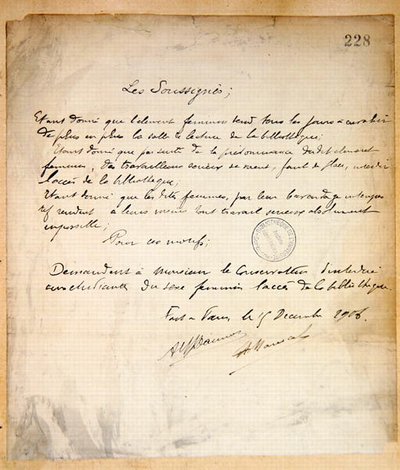 228
Les Soussignés;
Etant donné que l'élément féminin tend tous les jours à envahir
de plus en plus la salle de lecture de la bibliothèque;
Etant donné que par suite de la prédominance dudit élément
féminin, des travailleurs sérieux se voient, faute de place,
l'accès de la bibliothèque;
Etant donné que les dites femmes, par leur bavardage
rendent à leurs voisins tout travail sérieux absolument
impossible;
Pour ces motifs;
Demandent à Monsieur le Conservateur d'interdire
aux étudiants du sexe féminin l'accès de la bibliothèque
Fait à Paris le 15 Décembre 1906.